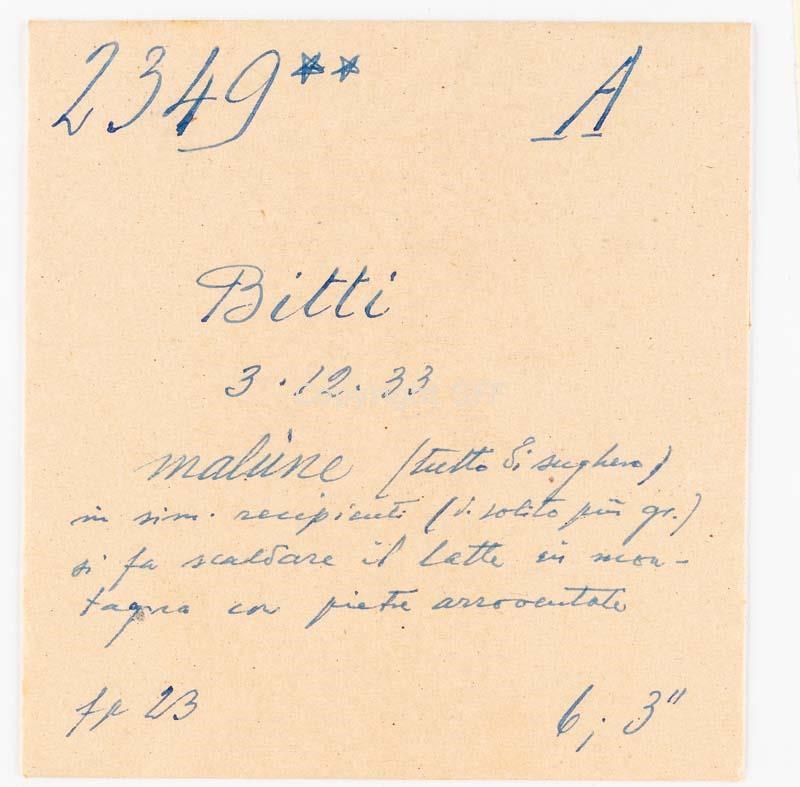 2349** A
Bitti
3.12.33
malùne (tutto di sughero)
in sim. recipienti (d. solito più gr.)
si fa scaldare il latte in mon-
tagna con pietre arroventate
fp 23 6; 3"